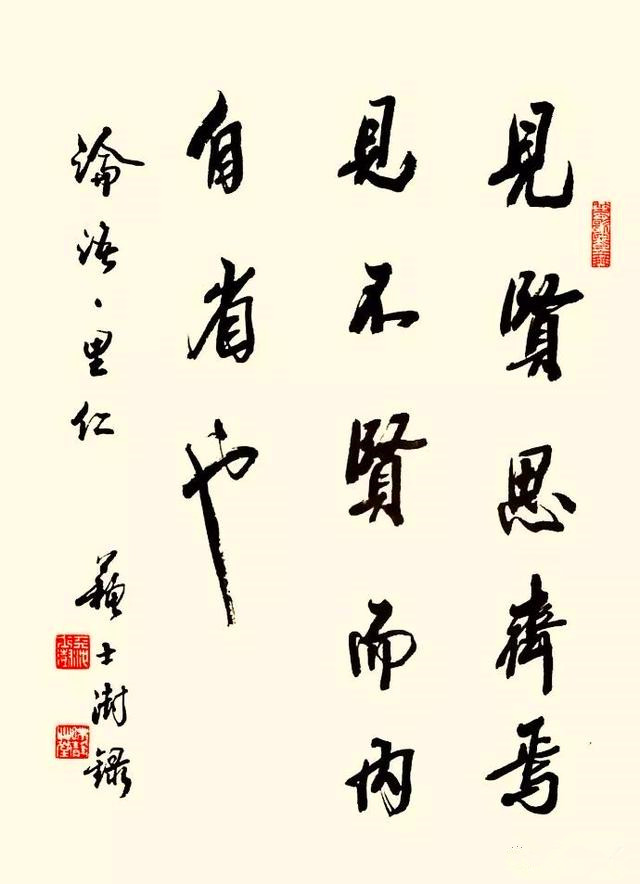 見賢思齊焉
見不賢而内
自省也
論語·里仁
蘇士澍録